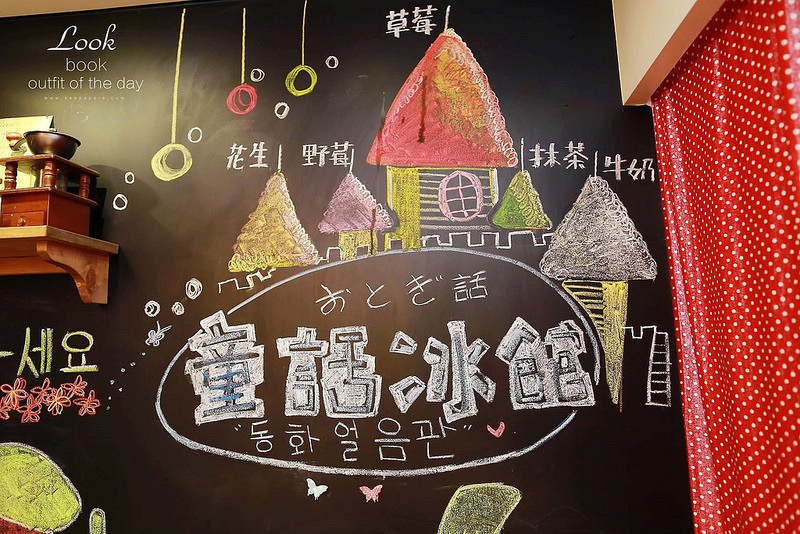 Look
book
outfit of the day
草莓
花生
野莓
抹茶
牛奶
おとぎ話
童話冰館
"동화얼음판"
세요